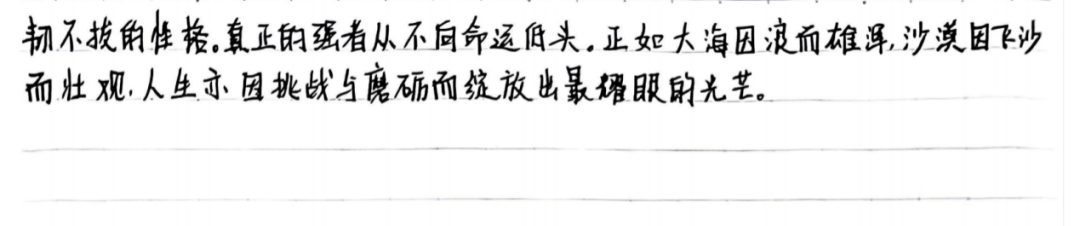 韧不拔的性格。真正的强者从不向命运低头。正如大海因浪而雄浑,沙漠因飞沙
而壮观,人生亦因挑战与磨砺而绽放出最耀眼的光芒。